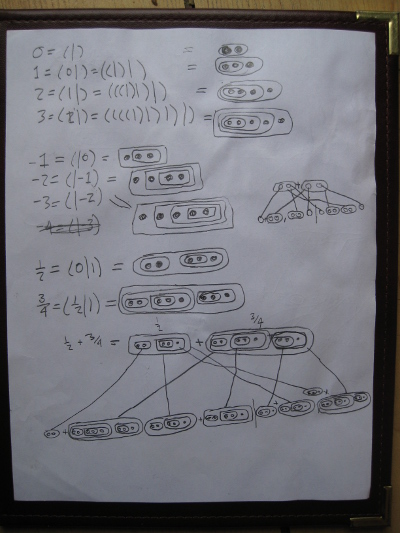 0 = (|) =
1 = (0|) = ((|)|) =
2 = (1|) = (((|)|)|) =
3 = (2|) = ((((|)|)|)|) =
-1 = (|0) =
-2 = (|-1) =
-3 = (|-2)
-4 = (|-3)
½ = (0|1) =
¾ = (½|1) =
½ ¾
½ + ¾ = +
+ + | + +